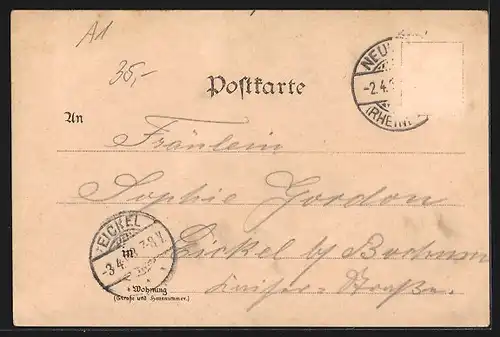 A1
35,-
Postkarte
NEU
-2.4.9
(RHEIN
An
Fräulein
Sophie Gordon
EICKEL
-3.4. 7-8 V.
in
Eickel b/ Bochum
Kaiser-Straße.
Wohnung
(Straße und Hausnummer.)